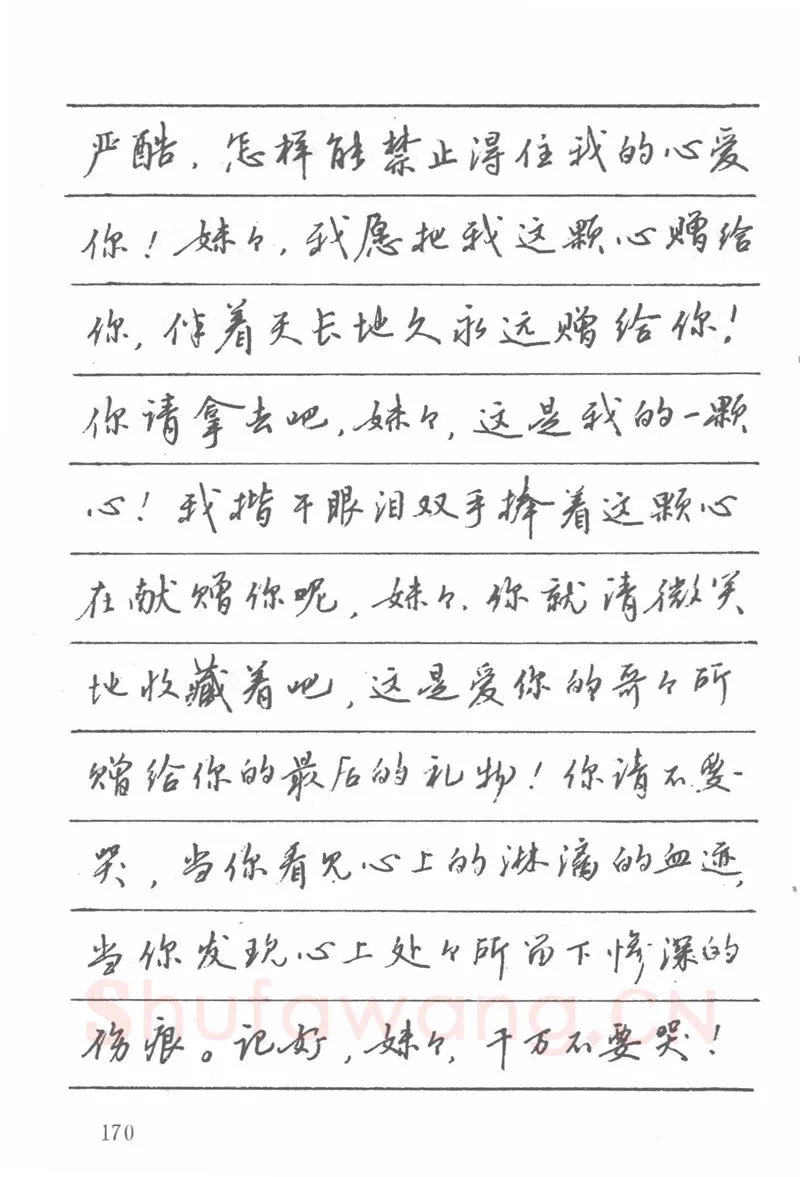 严酷，怎样能禁止得住我的心爱
你！妹々，我愿把我这颗心赠给
你，伴着天长地久永远赠给你！
你请拿去吧，妹々，这是我的一颗
心！我揩干眼泪双手捧着这颗心
在献赠你呢，妹々，你就请微笑
地收藏着吧，这是爱你的哥々所
赠给你的最后的礼物！你请不要
哭，当你看见心上的淋漓的血迹，
当你发现心上处々所留下惨深的
伤痕。记好，妹々，千万不要哭！
Shufawang.CN
170